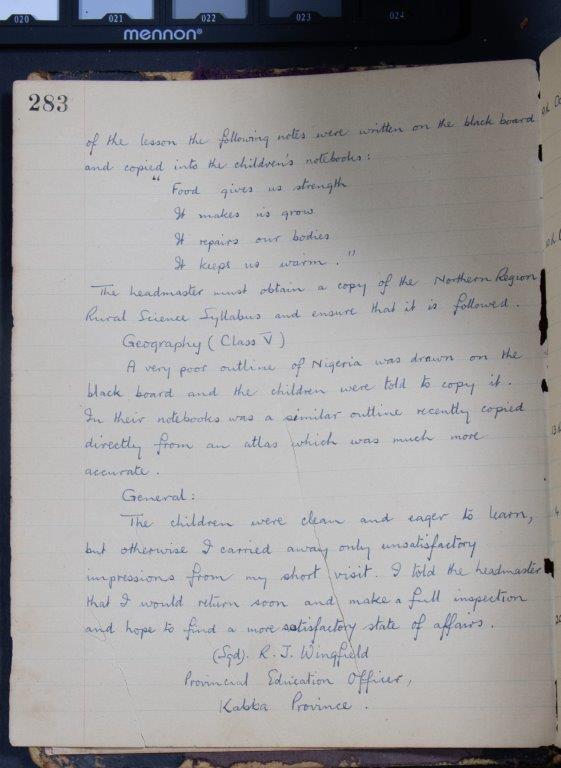 020 021 022 023 024
mennon®
283
of the lesson the following notes were written on the black board
and copied into the children's notebooks:
"Food gives us strength
It makes us grow
It repairs our bodies
It keeps us warm."
The headmaster must obtain a copy of the Northern Region
Rural Science Syllabus and ensure that it is followed.
Geography (Class V)
A very poor outline of Nigeria was drawn on the
black board and the children were told to copy it.
In their notebooks was a similar outline recently copied
directly from an atlas which was much more
accurate.
General:
The children were clean and eager to learn,
but otherwise I carried away only unsatisfactory
impressions from my short visit. I told the headmaster
that I would return soon and make a full inspection
and hope to find a more satisfactory state of affairs.
(Sgd). R. J. Wingfield
Provincial Education Officer,
Kabba Province.